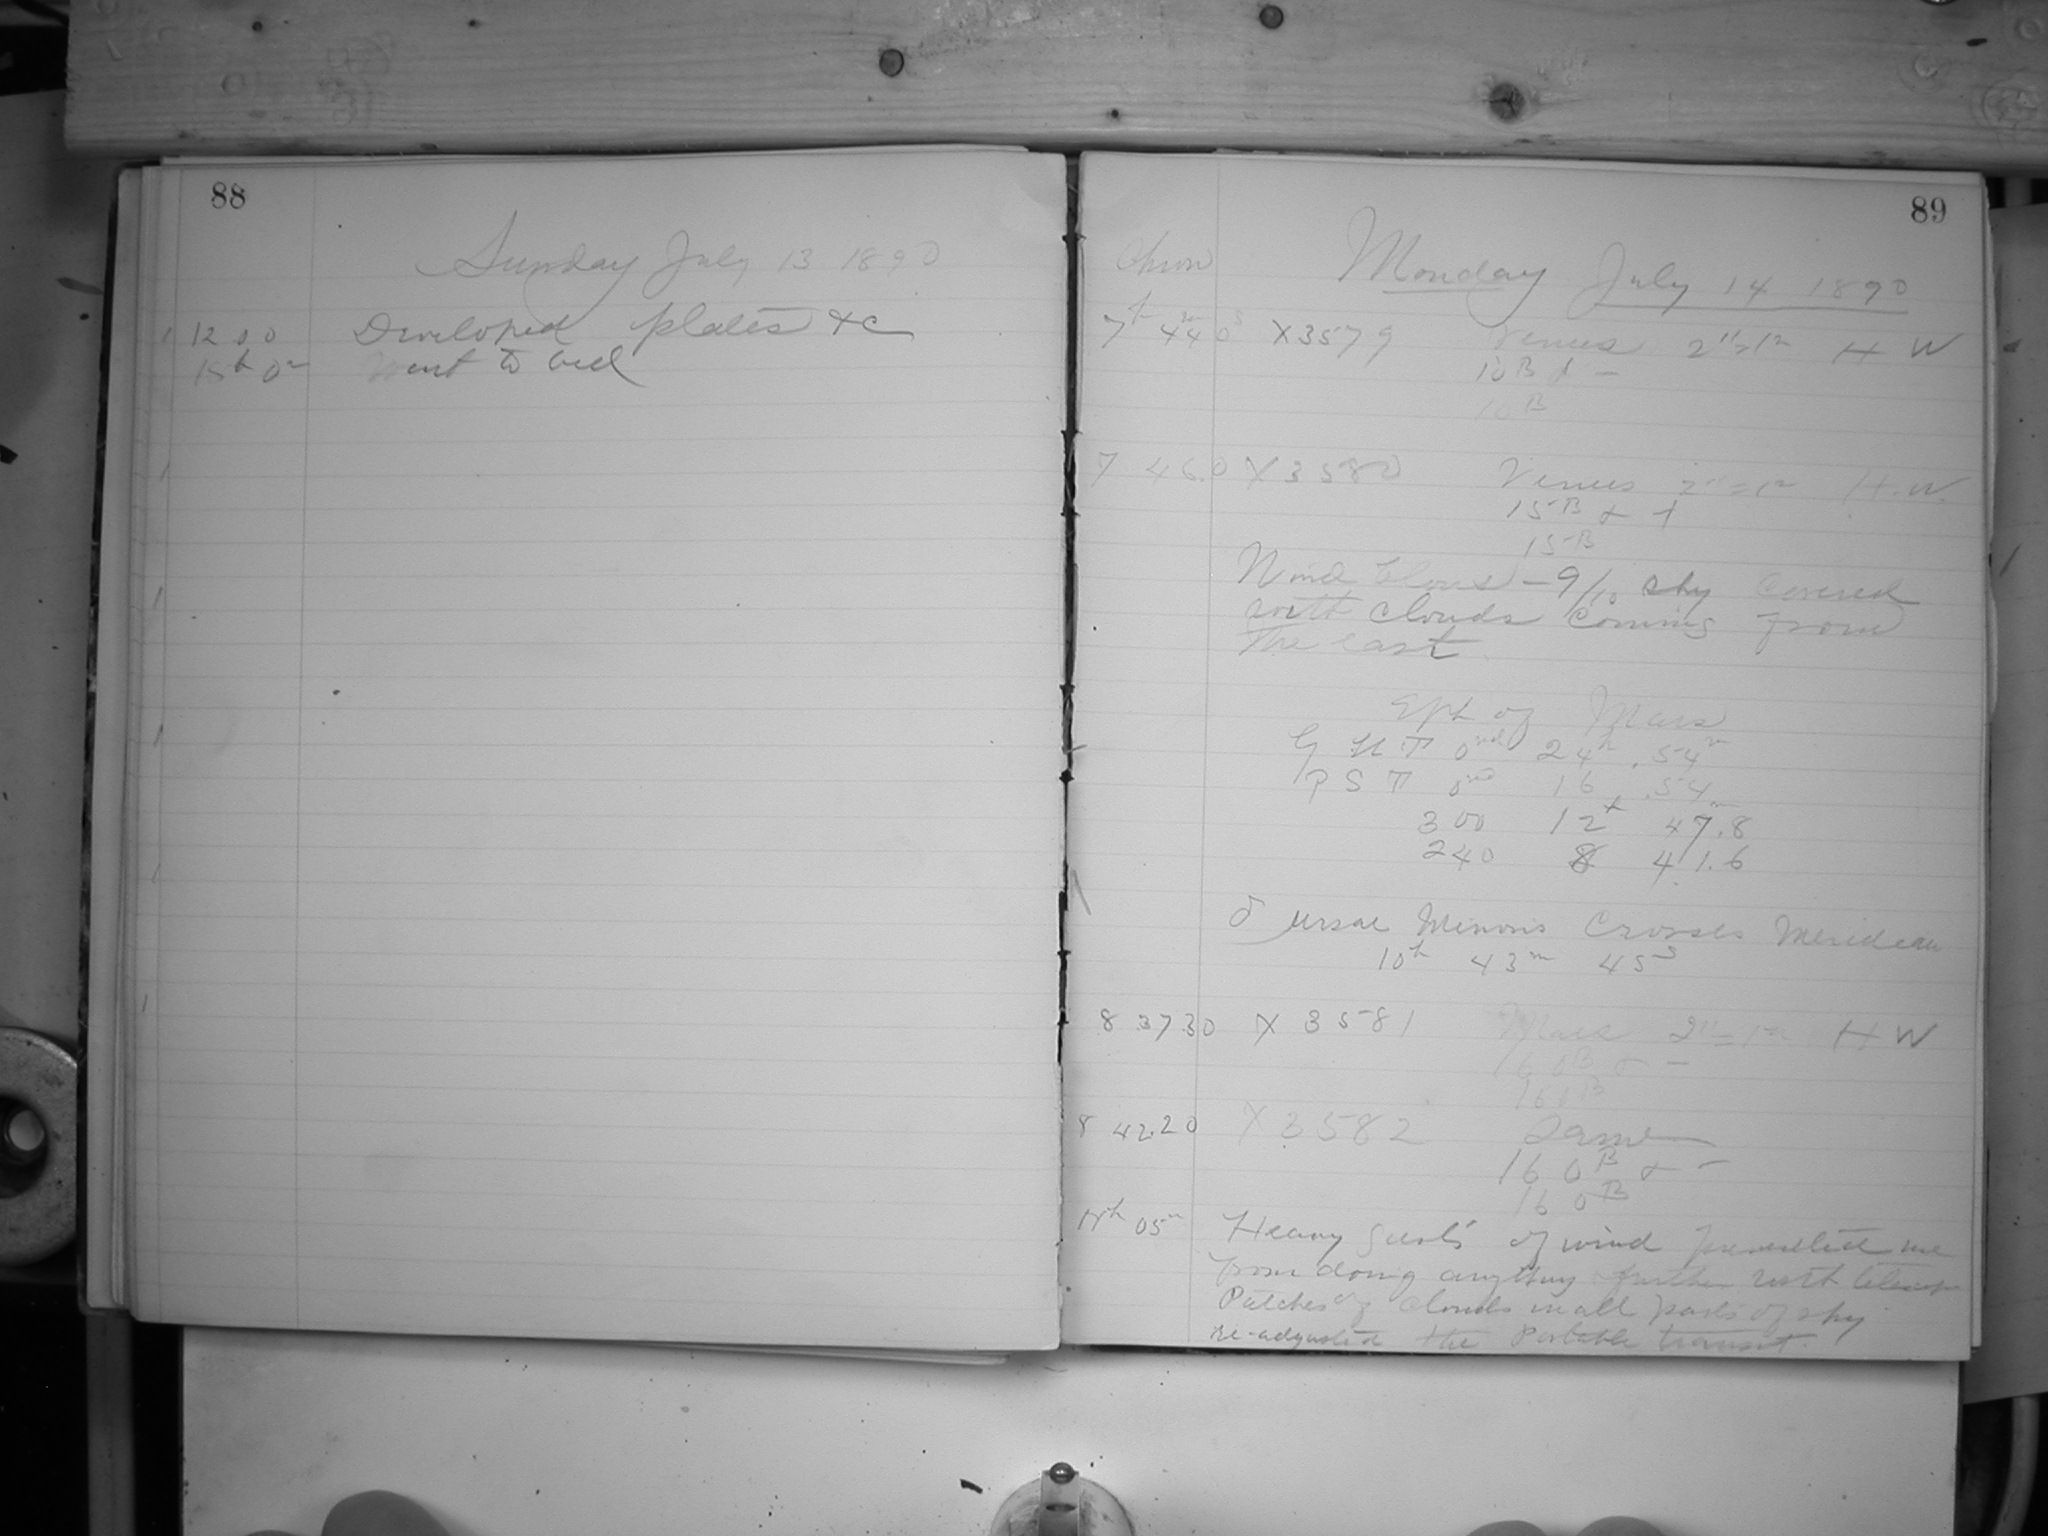 88
Sunday July 13 1890
12 0 0 Developed plates &c
15h 0m Went to bed
89
Chron Monday July 14 1890
7h 44m 0s X3579 Venus 2"=1m H W
10B -
10B
7 46.0 X3580 Venus 2"=1m H.W.
15B & +
15B
Wind blows - 9/10 sky covered
with clouds coming from
the east.
Eph of Mars
G M T 0 24h 54m
P S T 0 16 54m
300 12h 47.8
240 8 41.6
δ Ursae Minoris Crosses Meridian
10h 43m 45s
8 37 30 X 3581 Mars 2"=1m H W
160B -
160B
8 42.20 X3582 Same
160B & -
160B
05m Heavy gusts of wind prevented me
from doing anything further with telescope
Patches of clouds in all parts of sky
re-adjusted the Portable transit.